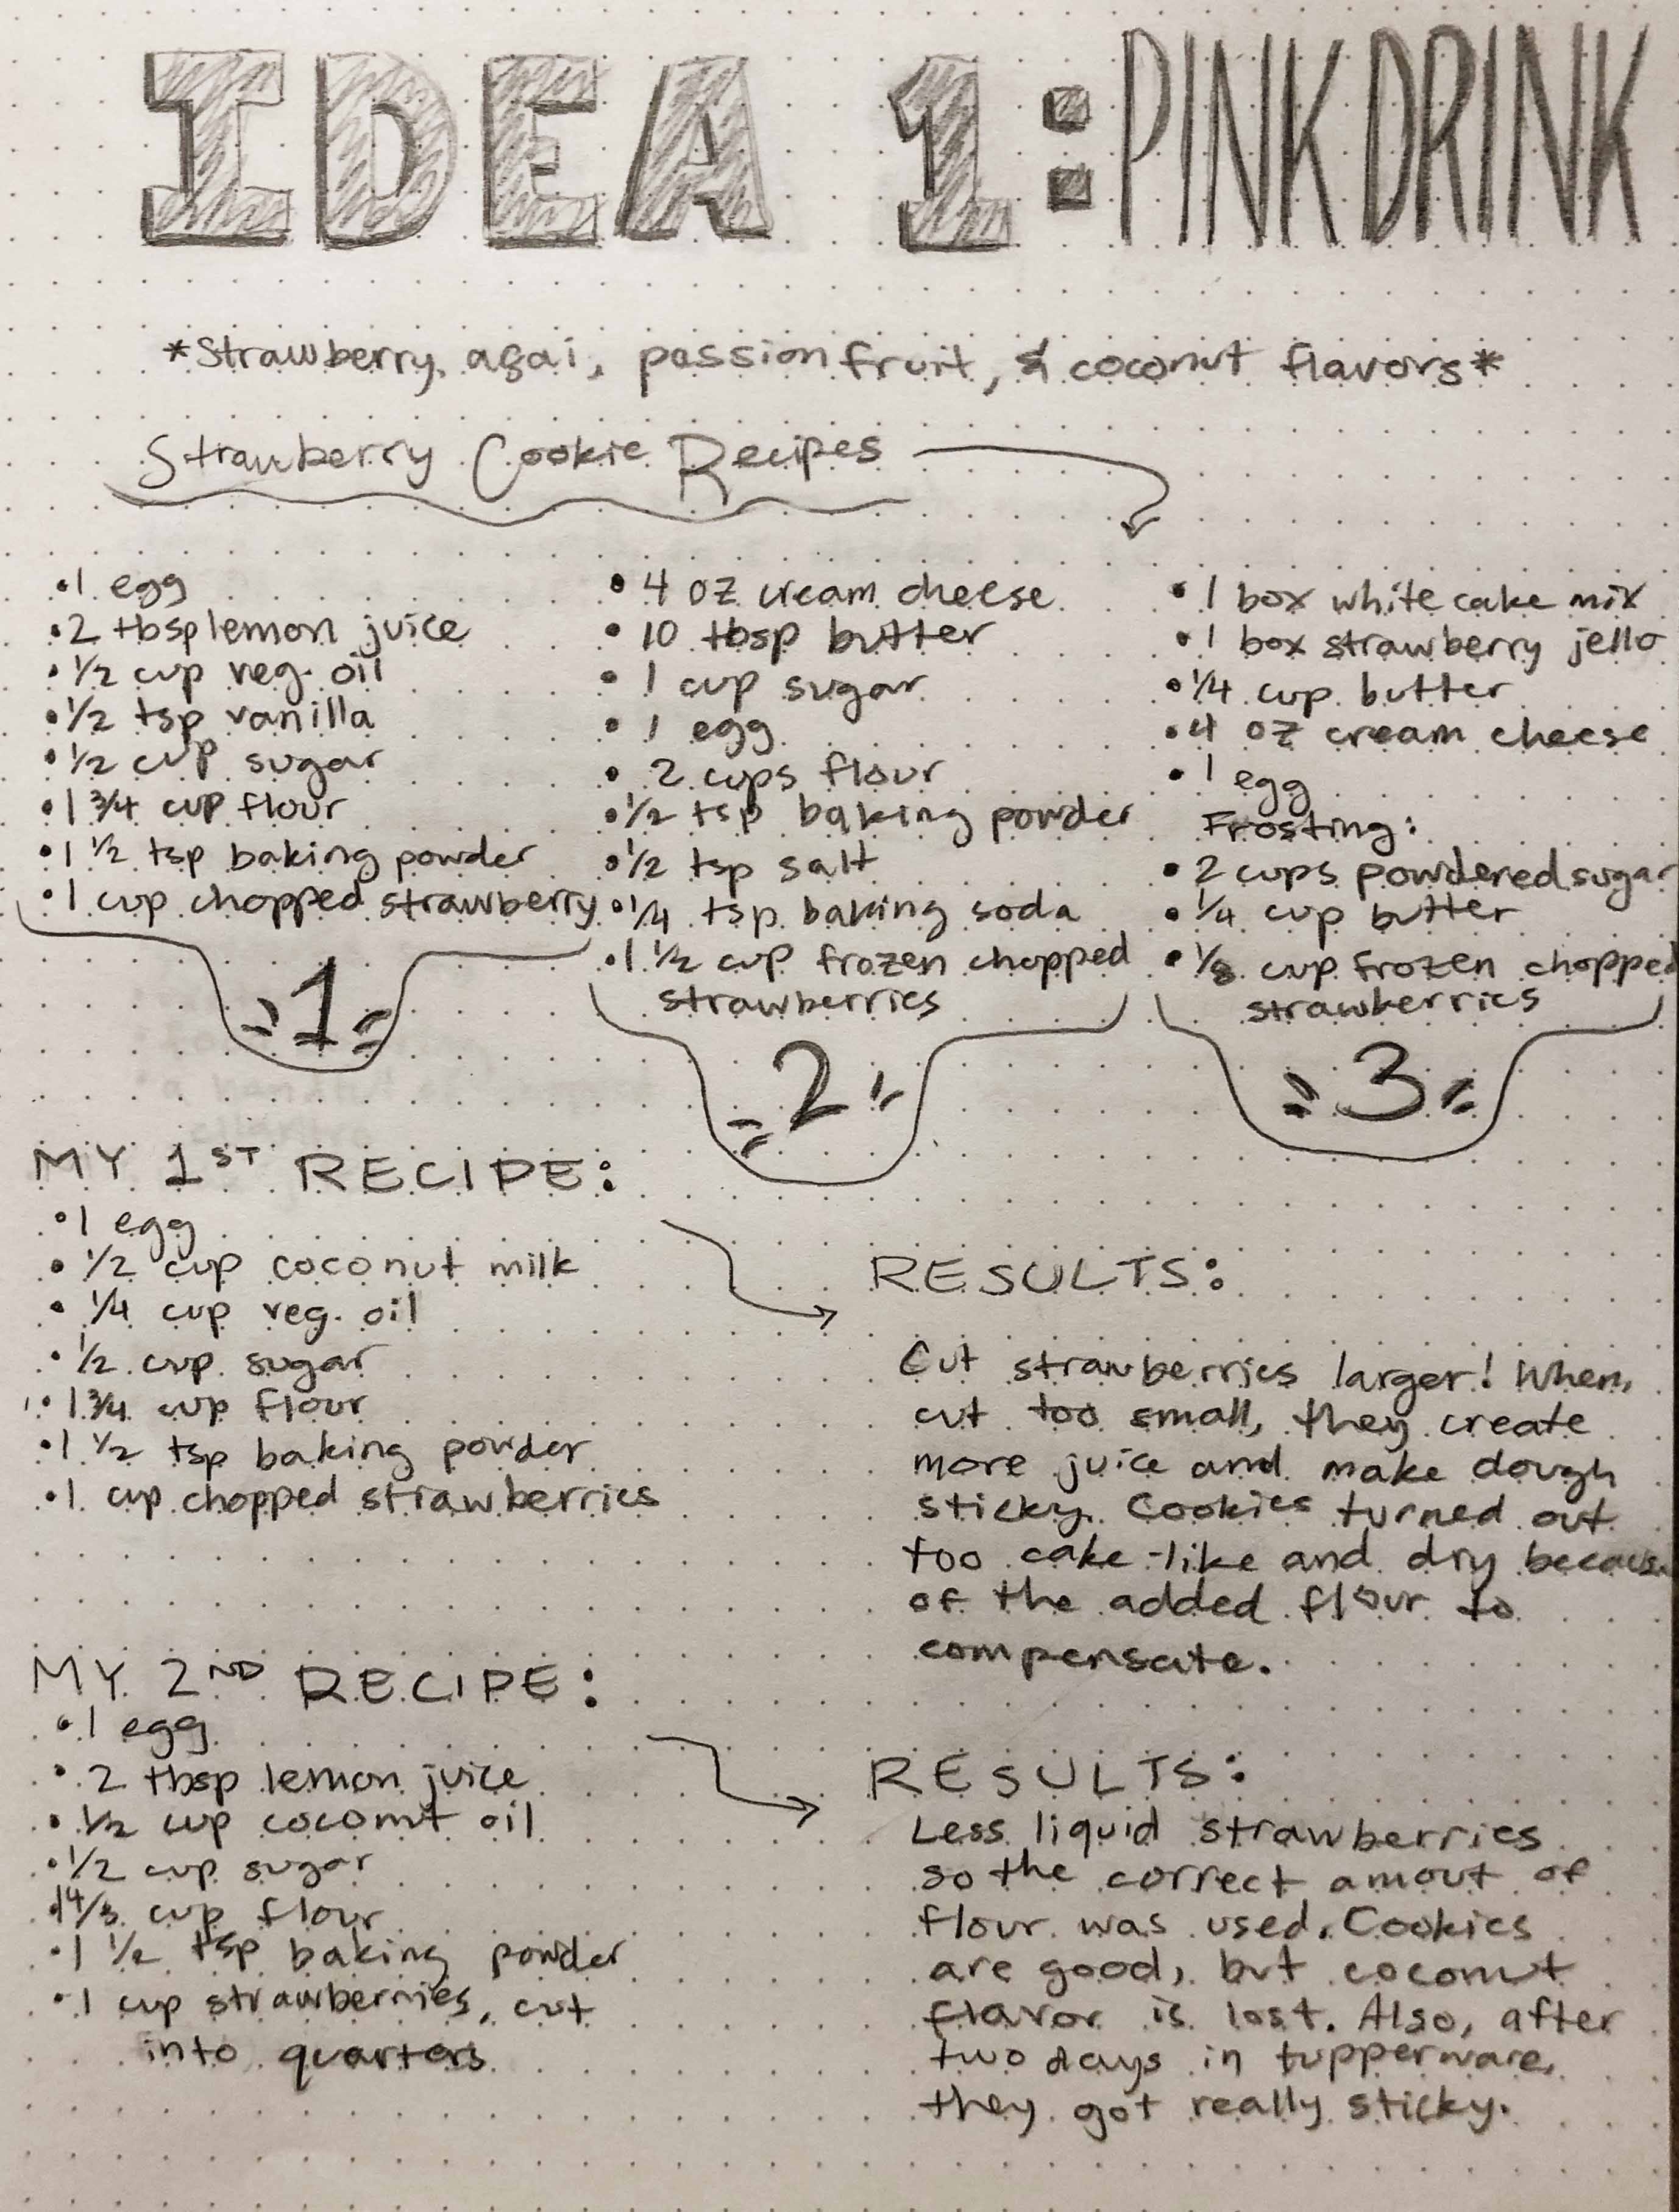 IDEA 1: PINK DRINK
*Strawberry, açai, passionfruit, & coconut flavors*
Strawberry Cookie Recipes
•1 egg
•2 tbsp lemon juice
•1/2 cup veg. oil
•1/2 tsp vanilla
•1/2 cup sugar
•1 3/4 cup flour
•1 1/2 tsp baking powder
•1 cup chopped strawberry
1
•4 oz cream cheese
•10 tbsp butter
•1 cup sugar
•1 egg
•2 cups flour
•1/2 tsp baking powder
•1/2 tsp salt
•1/4 tsp baking soda
•1 1/2 cup frozen chopped
strawberries
2
•1 box white cake mix
•1 box strawberry jello
•1/4 cup butter
•4 oz cream cheese
•1 egg
Frosting:
•2 cups powdered sugar
•1/4 cup butter
•1/8 cup frozen chopped
strawberries
3
MY 1ST RECIPE:
•1 egg
•1/2 cup coconut milk
•1/4 cup veg. oil
•1/2 cup sugar
•1 3/4 cup flour
•1 1/2 tsp baking powder
•1 cup chopped strawberries
RESULTS:
Cut strawberries larger! When
cut too small, they create
more juice and make dough
sticky. Cookies turned out
too cake-like and dry because
of the added flour to
compensate.
MY 2ND RECIPE:
•1 egg
•2 tbsp lemon juice
•1/2 cup coconut oil
•1/2 cup sugar
•1 4/3 cup flour
•1 1/2 tsp baking powder
•1 cup strawberries, cut
into quarters
RESULTS:
Less liquid strawberries
so the correct amout of
flour was used. Cookies
are good, but coconut
flavor is lost. Also, after
two days in tupperware,
they got really sticky.